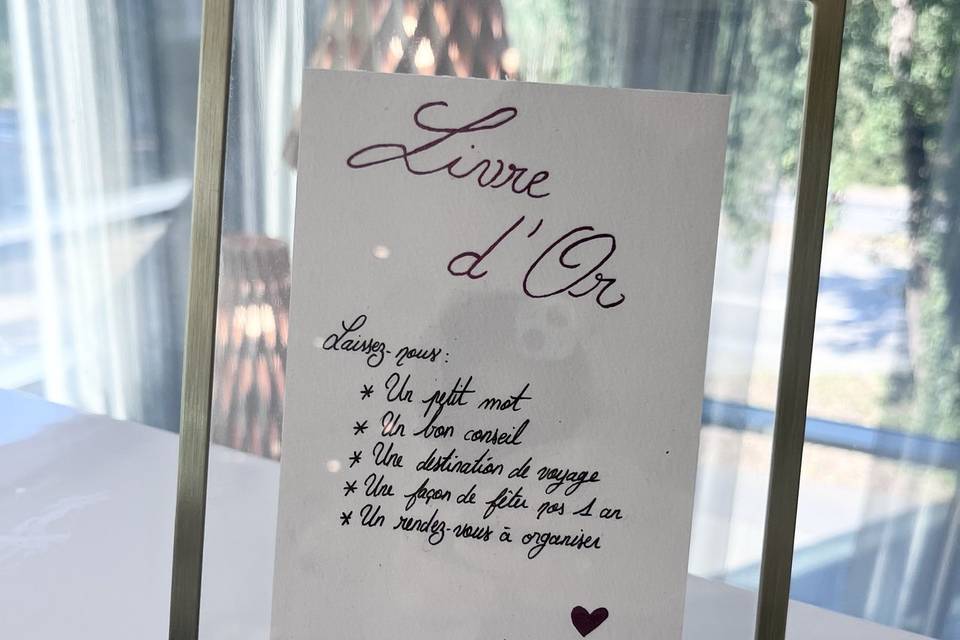 Livre
d'Or
Laissez-nous:
* Un petit mot
* Un bon conseil
* Une destination de voyage
* Une façon de fêter nos 1 an
* Un rendez-vous à organiser